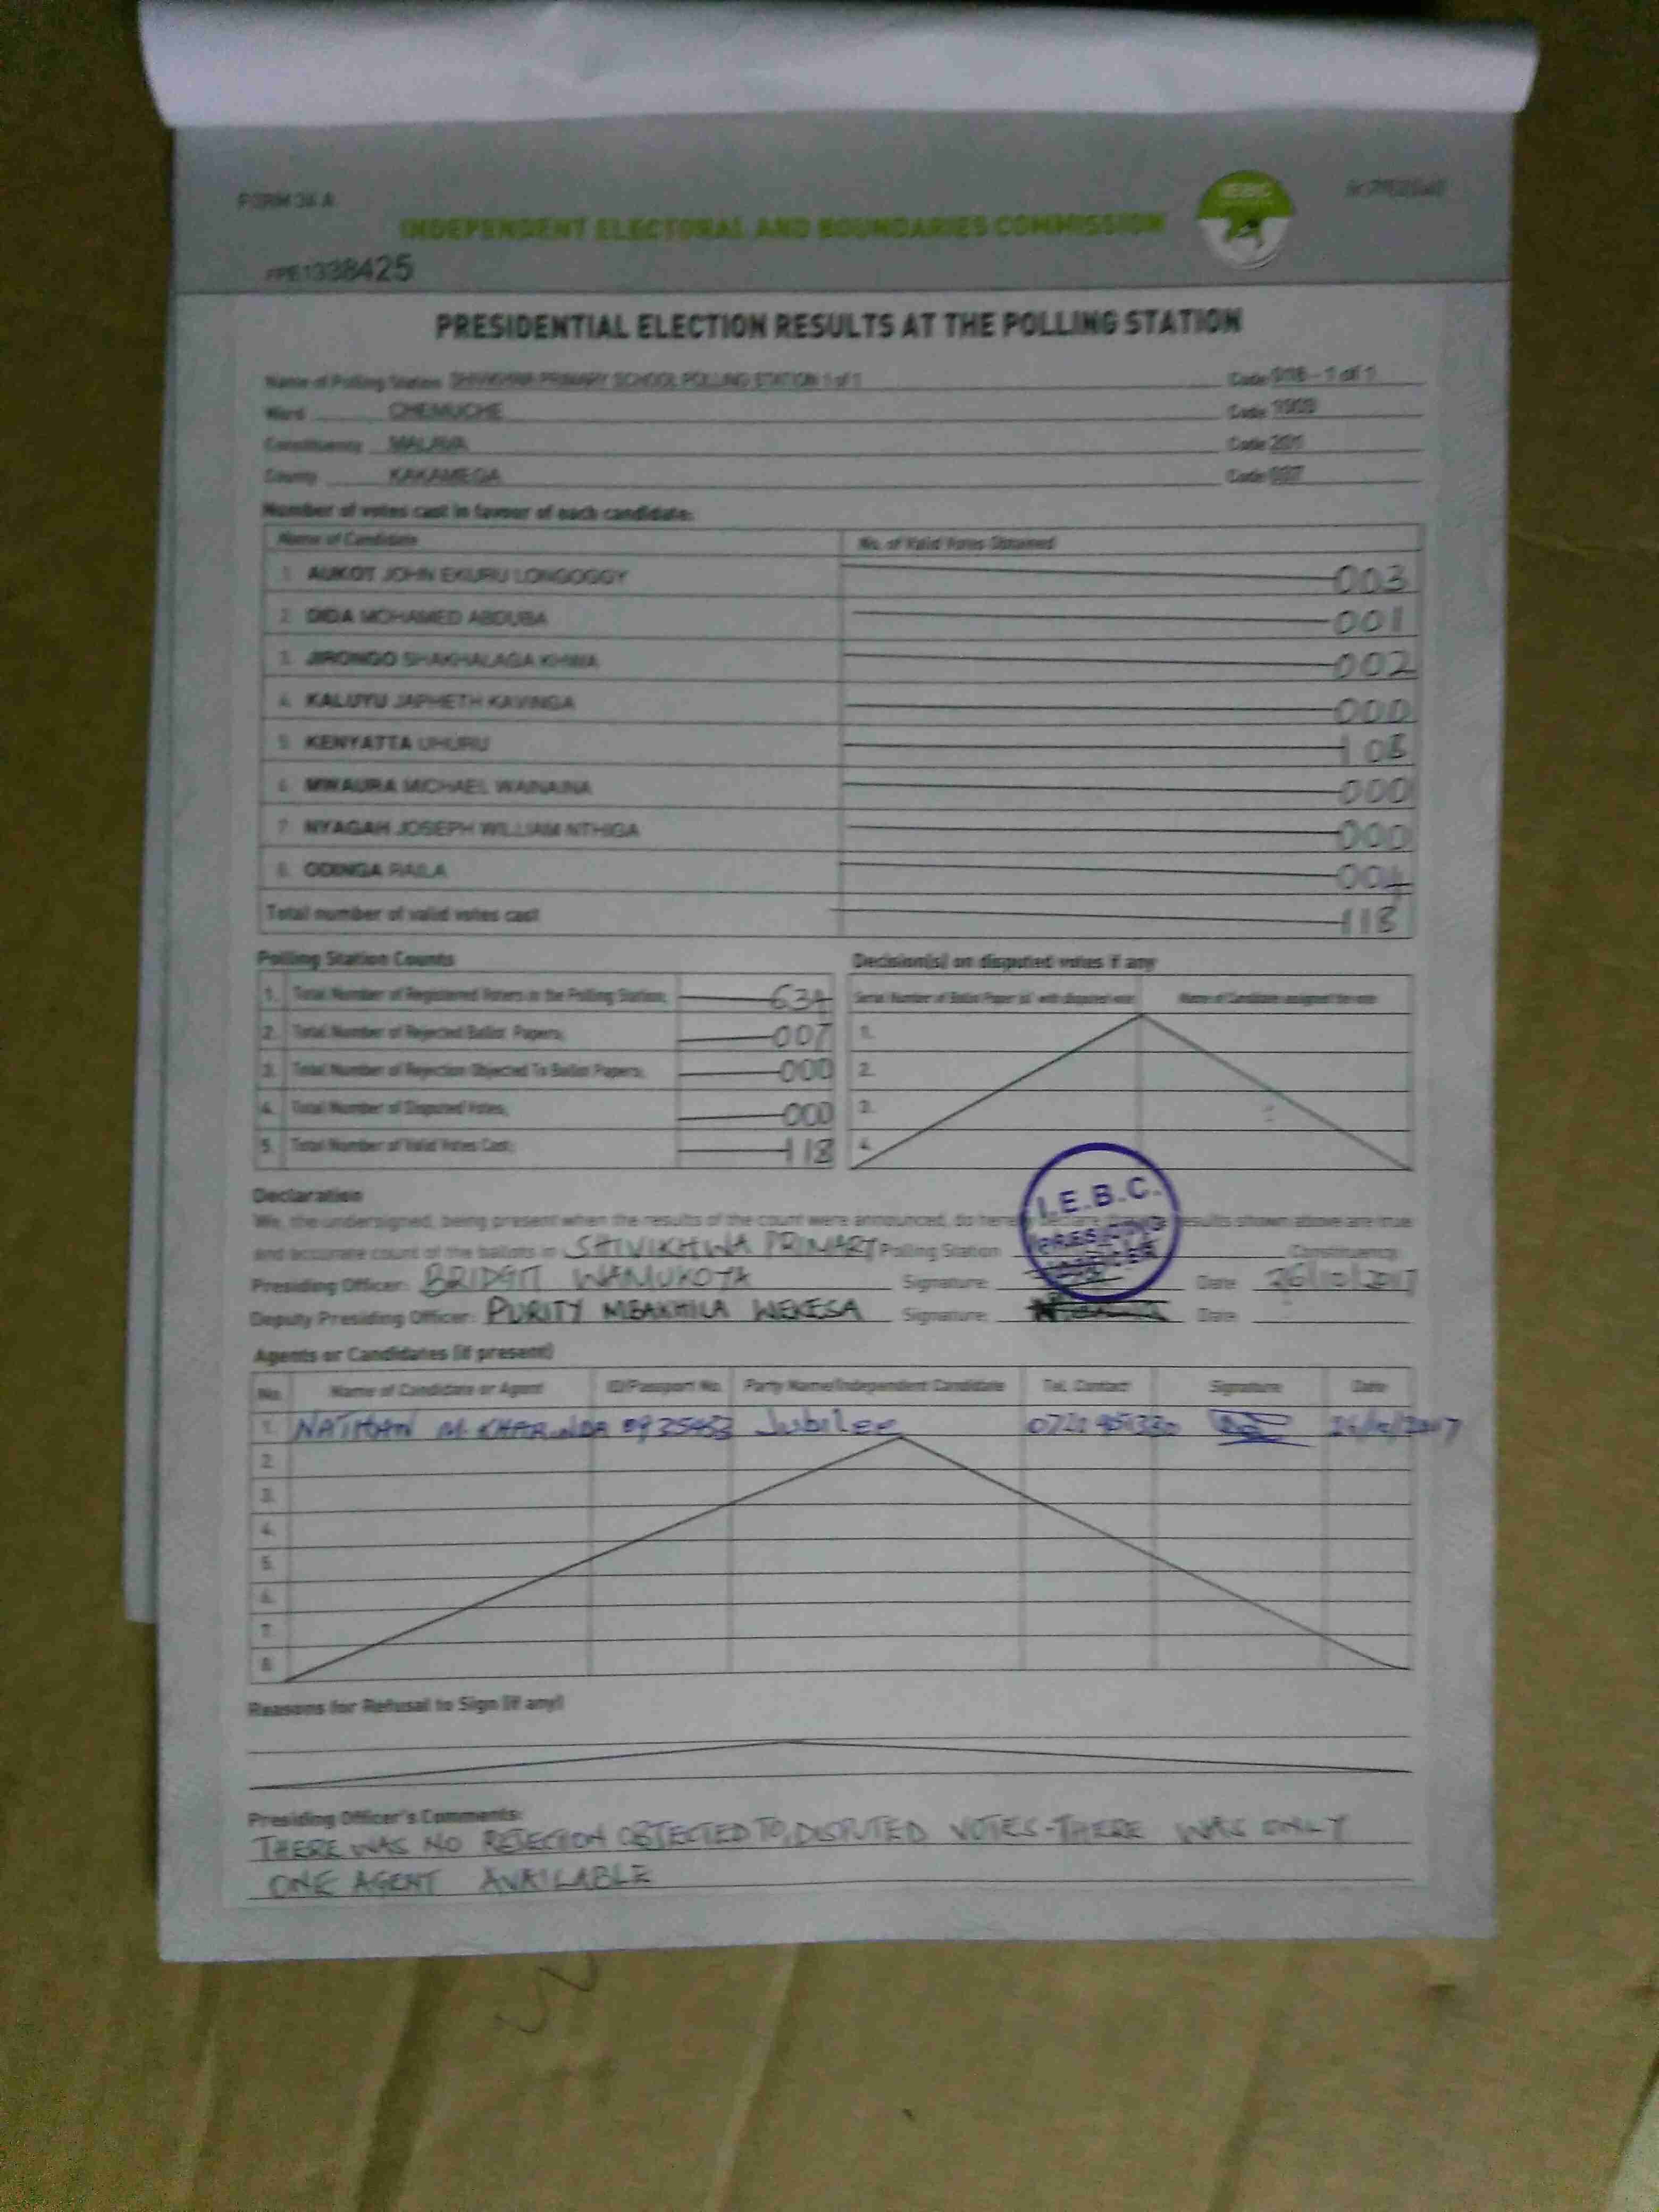 FORM 34 A
INDEPENDENT ELECTORAL AND BOUNDARIES COMMISSION
IEBC
1338425
PRESIDENTIAL ELECTION RESULTS AT THE POLLING STATION
Name of Polling Station SHIVIKHWA PRIMARY SCHOOL POLLING STATION 1 of 1 Code - 1 of 1
Ward CHEMUCHE Code
Constituency MALAVA Code 201
County KAKAMEGA Code 037
Number of votes cast in favour of each candidate:
Name of Candidate No. of Valid Votes Obtained
1. AUKOT JOHN EKURU LONGOGGY 003
2. DIDA MOHAMED ABDUBA 001
3. JIRONGO SHAKHALAGA KHWA 002
4. KALUYU JAPHETH KAVINGA 000
5. KENYATTA UHURU 108
6. MWAURA MICHAEL WAINAINA 000
7. NYAGAH JOSEPH WILLIAM NTHIGA 000
8. ODINGA RAILA 004
Total number of valid votes cast 118
Polling Station Counts
1. Total Number of Registered Voters in the Polling Station; 634
2. Total Number of Rejected Ballot Papers; 007
3. Total Number of Rejection Objected To Ballot Papers; 000
4. Total Number of Disputed Votes; 000
5. Total Number of Valid Votes Cast; 118
Decision(s) on disputed votes if any
Serial Number of Ballot Paper (s) with disputed vote Name of Candidate assigned the vote
1.
2.
3.
4.
Declaration
We, the undersigned, being present when the results of the count were announced, do hereby declare results shown above are true
and accurate count of the ballots in SHIVIKHWA PRIMARY Polling Station Constituency
I.E.B.C.
PRESIDING
OFFICER
Presiding Officer: BRIDGIT WAMUKOTA Signature: Date 26/10/2017
Deputy Presiding Officer: PURITY MBAKHILA WEKESA Signature: Date
Agents or Candidates (if present)
No. Name of Candidate or Agent ID/Passport No. Party Name/Independent Candidate Tel. Contact Signature Date
1. NATHAN M. Jubilee 26/10/2017
2.
3.
4.
5.
6.
7.
8.
Reasons for Refusal to Sign (if any)
Presiding Officer's Comments:
THERE WAS NO REJECTION OBJECTED TO, DISPUTED VOTES - THERE WAS ONLY
ONE AGENT AVAILABLE